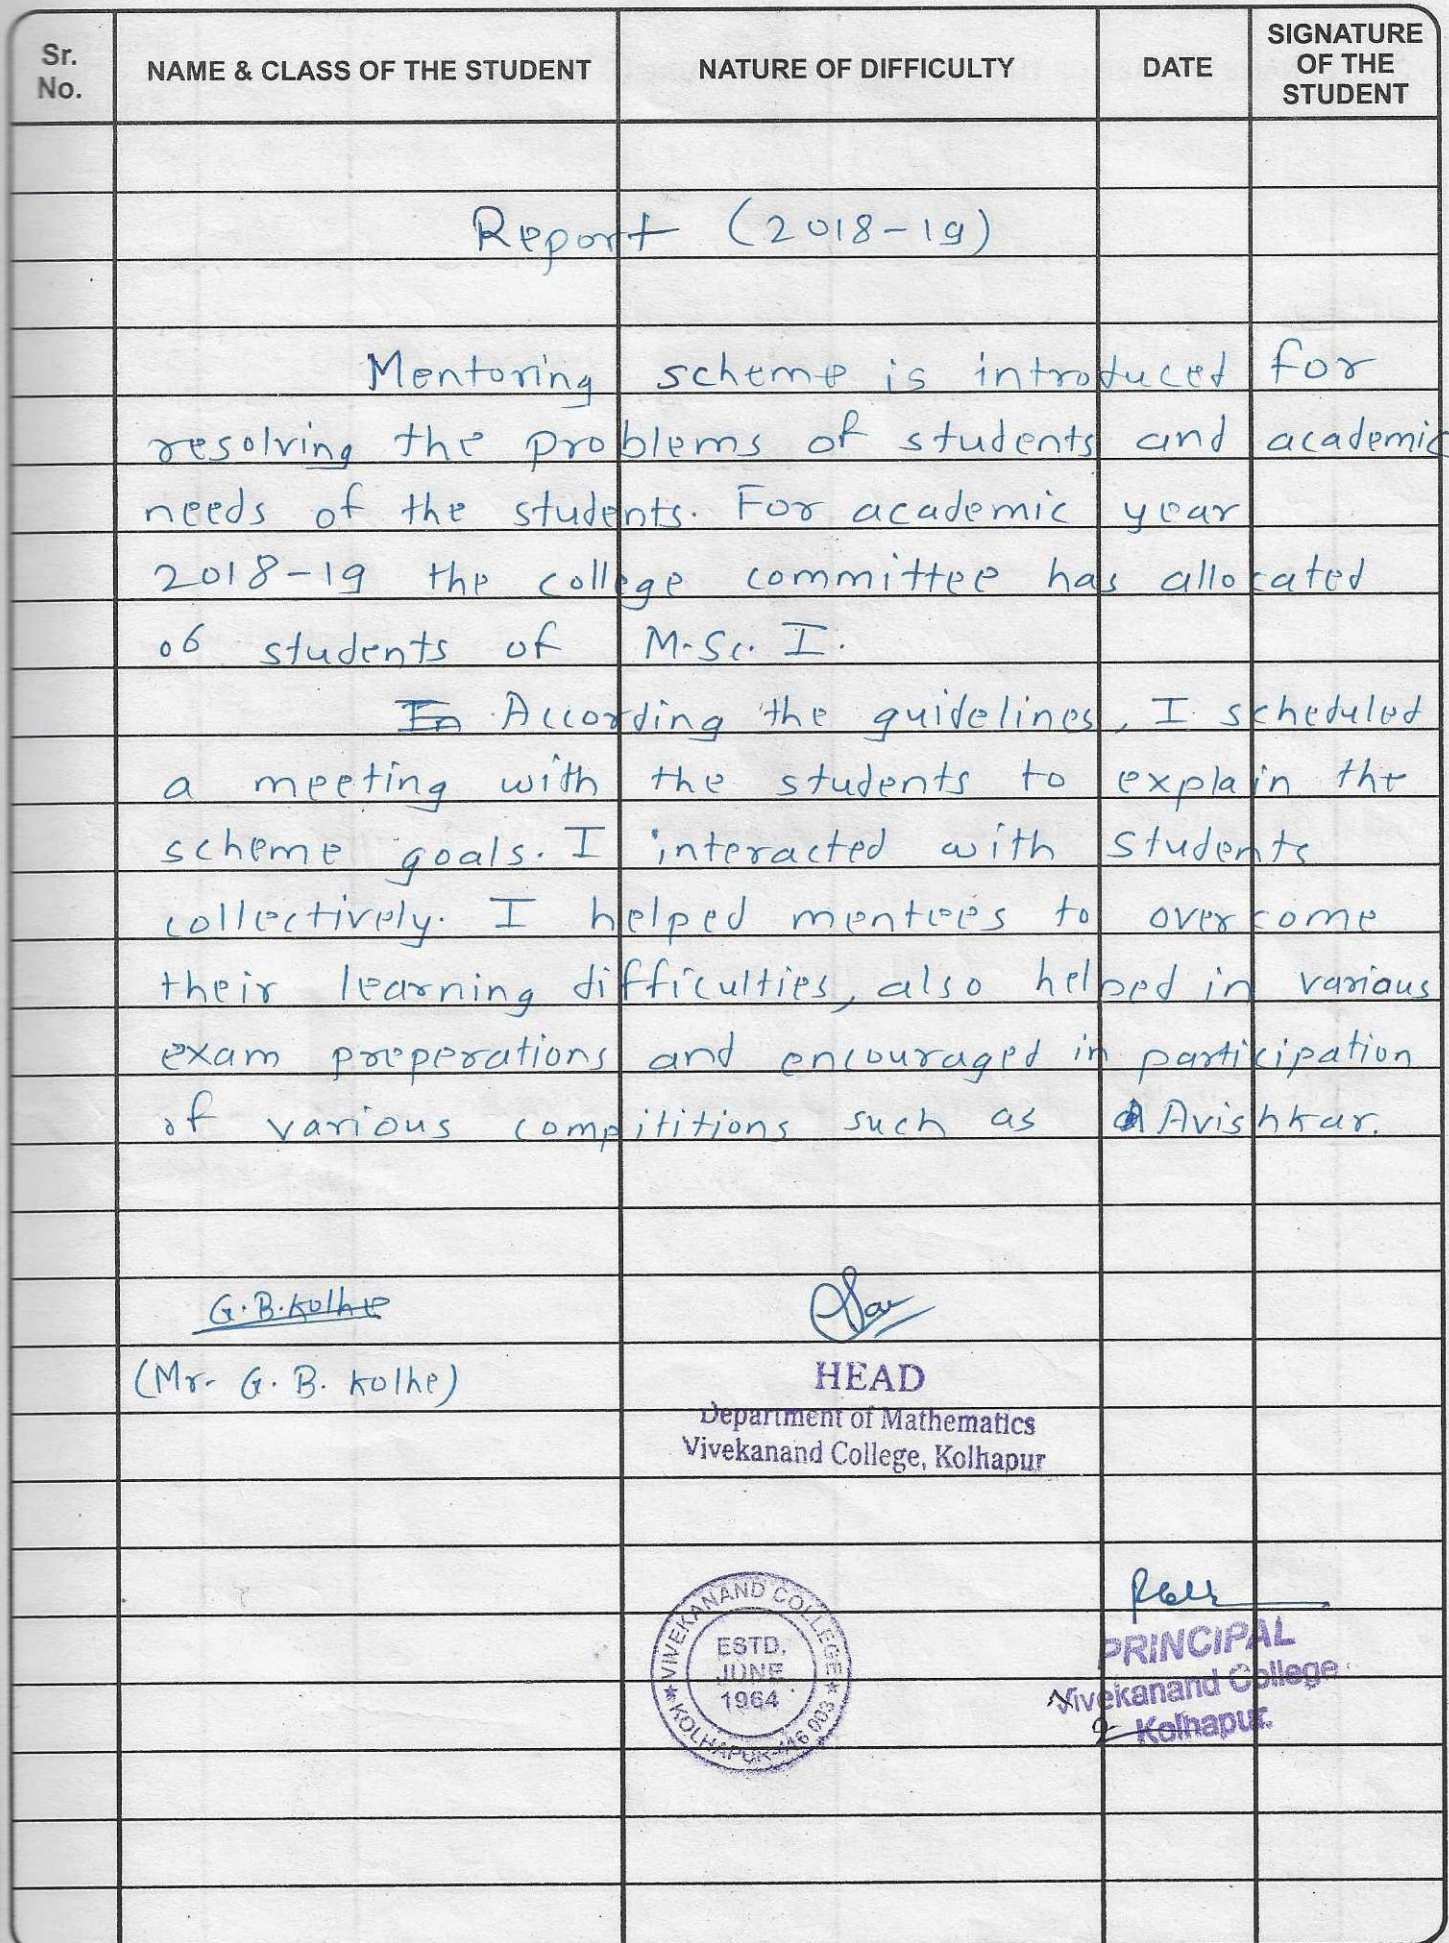 Sr. No. NAME & CLASS OF THE STUDENT NATURE OF DIFFICULTY DATE SIGNATURE OF THE STUDENT
Report (2018-19)
Mentoring scheme is introduced for
resolving the problems of students and academic
needs of the students. For academic year
2018-19 the college committee has allocated
06 students of M.Sc. I.
In According the guidelines, I scheduled
a meeting with the students to explain the
scheme goals. I interacted with students
collectively. I helped mentees to overcome
their learning difficulties, also helped in various
exam preperations and encouraged in participation
of various compititions such as Avishkar.
G.B.Kolhe
(Mr. G. B. Kolhe)
HEAD
Department of Mathematics
Vivekanand College, Kolhapur
VIVEKANAND COLLEGE
ESTD.
JUNE
1964
KOLHAPUR-416 003
PRINCIPAL
Vivekanand College
Kolhapur.